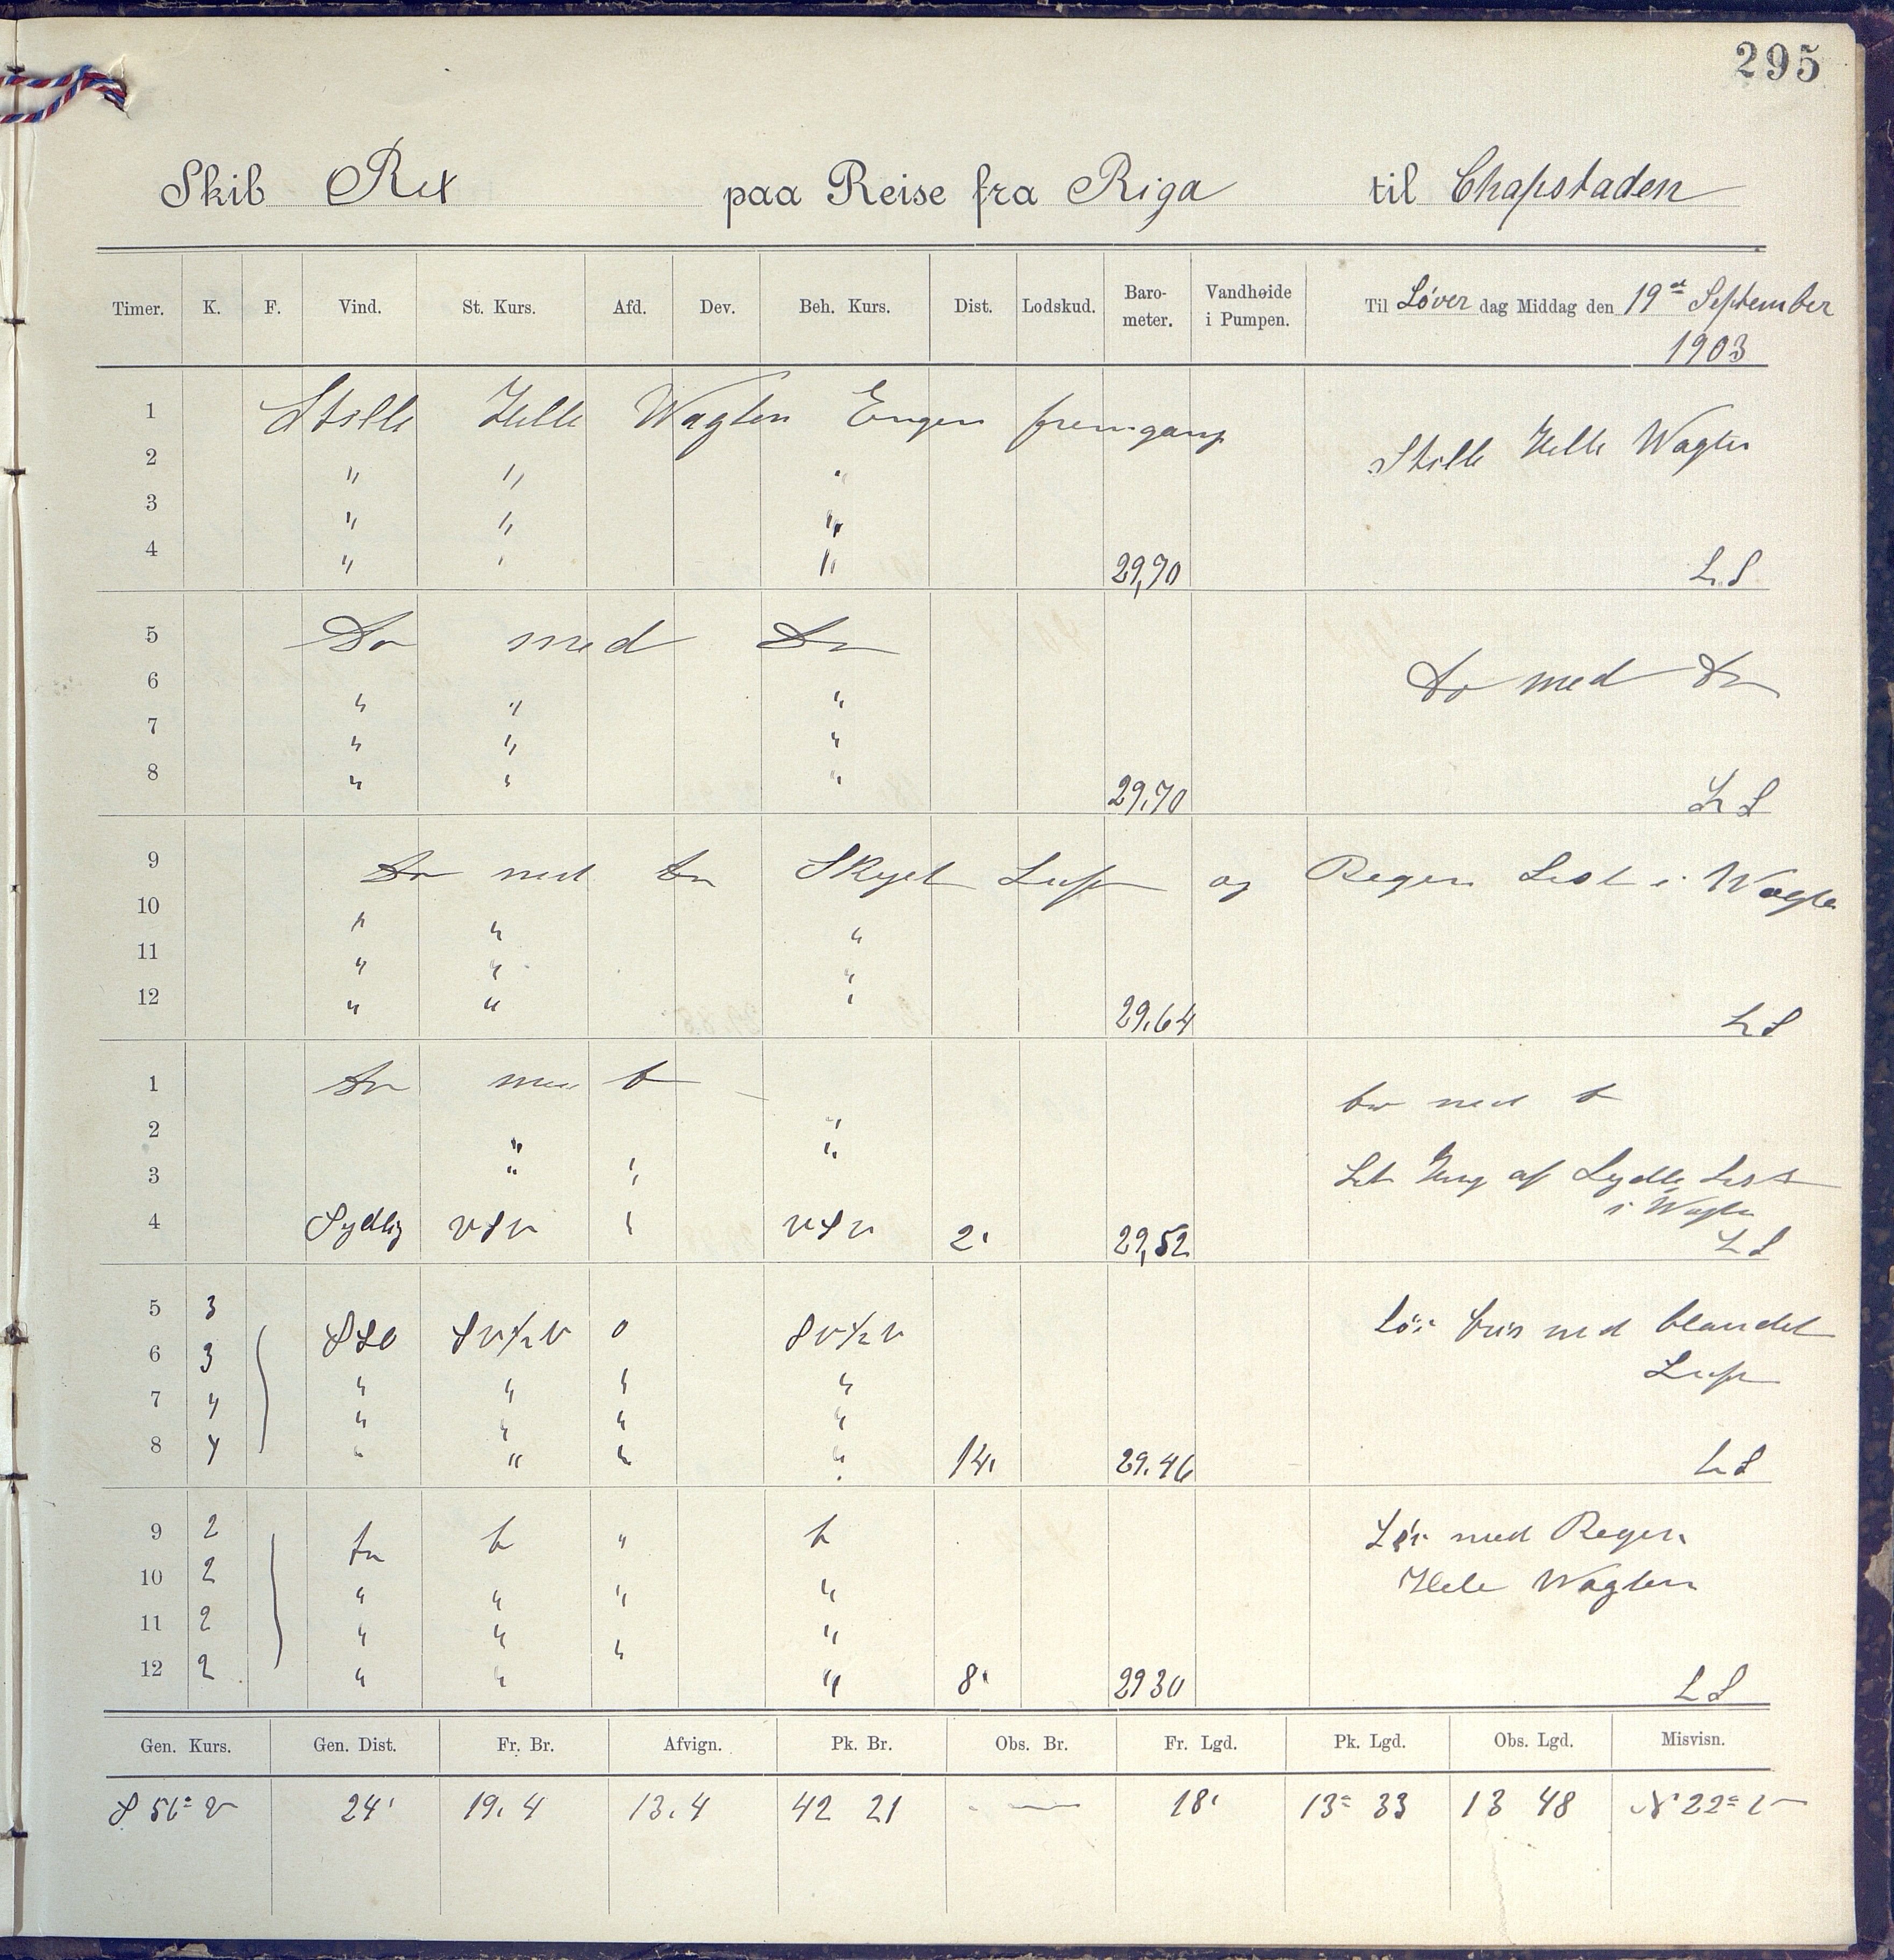 295
Skib Rex paa Reise fra Riga til Chapstaden
Timer. K. F. Vind. St. Kurs. Afd. Dev. Beh. Kurs. Dist. Lodskud. Baro-meter. Vandhøide i Pumpen. Til Løver dag Middag den 19de September
1903
1 Stille Hele Wagten Engen fremgang
Stille Hele Wagten
2 " " "
3 " " "
4 " " " 29,70 L S
5 Do med Do
6 " " " Do med Do
7 " " "
8 " " " 29.70 L S
9 Do med Do Skyet Luft og Regen Sist i Wagten
10 " " "
11 " " "
12 " " " 29.64 L S
1 Do med D
Do med D
2 " "
3 " " " Let Sydlig Sist
i Wagten
4 Sydlig VSV " VSV 2' 29,52 L S
5 3
SSO SV½V 0 SV½V Lør bris med blandet
6 3
Luft
7 4 " " " "
8 4 " " " " 14' 29.46 L S
9 2 Do D " D Lør med Regen
10 2 " " " " Hele Wagten
11 2 " " " "
12 2 " " " 8' 29 30 L S
Gen. Kurs. Gen. Dist. Fr. Br. Afvign. Pk. Br. Obs. Br. Fr. Lgd. Pk. Lgd. Obs. Lgd. Misvisn.
S 56° V 24' 19.4 13.4 42 21 — 18' 13° 33 13 48 N 22° V